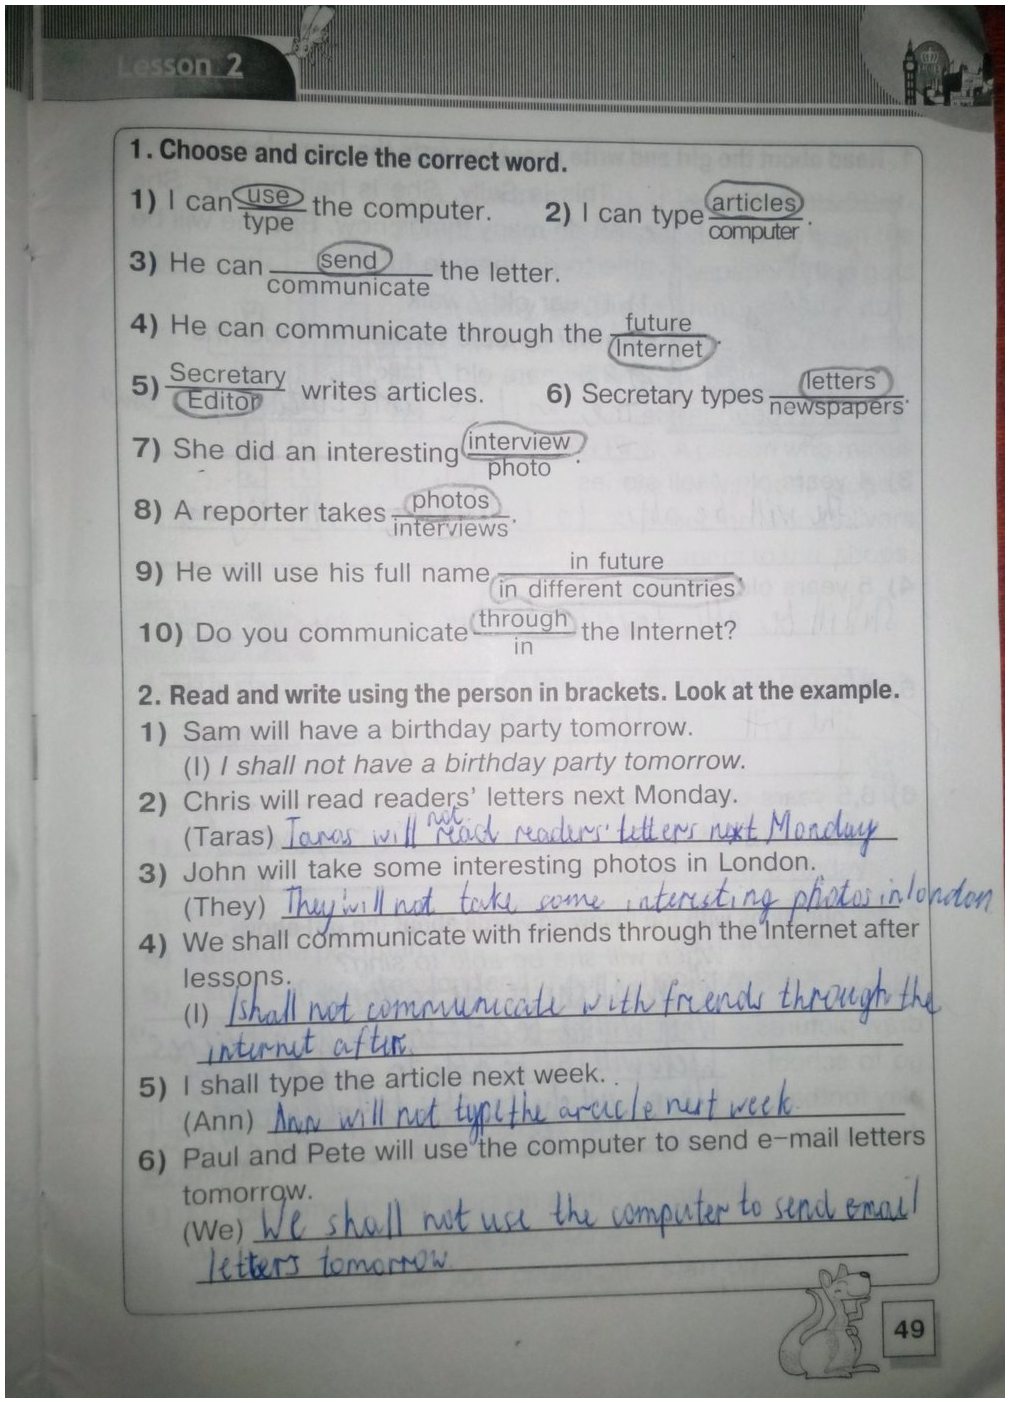 Lesson 2
1. Choose and circle the correct word.
1) I can use/type the computer. 2) I can type articles/computer.
3) He can send/communicate the letter.
4) He can communicate through the future/Internet.
5) Secretary/Editor writes articles. 6) Secretary types letters/newspapers.
7) She did an interesting interview/photo.
8) A reporter takes photos/interviews.
9) He will use his full name in future/in different countries.
10) Do you communicate through/in the Internet?
2. Read and write using the person in brackets. Look at the example.
1) Sam will have a birthday party tomorrow.
(I) I shall not have a birthday party tomorrow.
2) Chris will read readers' letters next Monday.
(Taras) Taras will not read readers' letters next Monday
3) John will take some interesting photos in London.
(They) They will not take some interesting photos in london
4) We shall communicate with friends through the Internet after
lessons.
(I) I shall not communicate with friends through the
internet after.
5) I shall type the article next week.
(Ann) Ann will not type the arcicle next week.
6) Paul and Pete will use the computer to send e-mail letters
tomorrow.
(We) We shall not use the computer to send email
letters tomorrow.
49